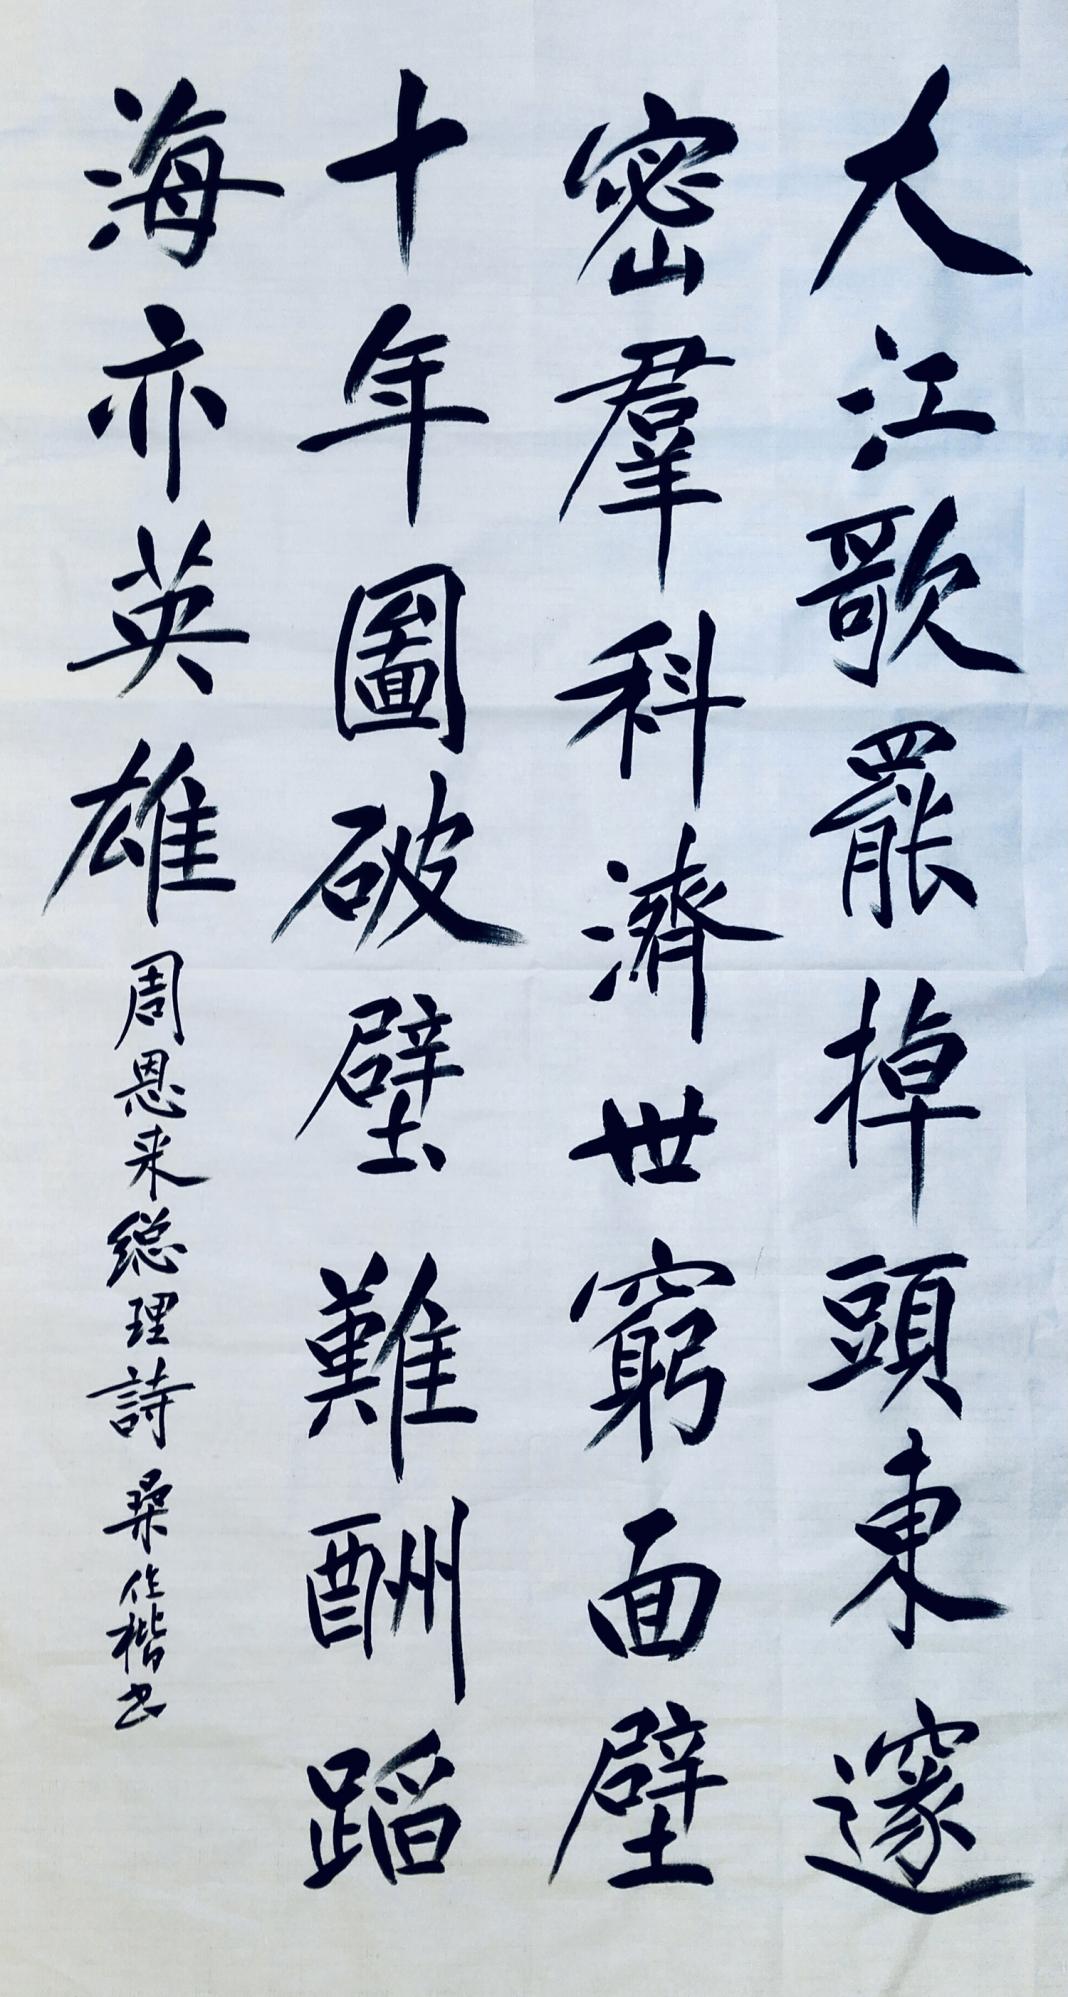 大江歌罷掉頭東邃
密羣科濟世窮面壁
十年圖破壁難酬蹈
海亦英雄
周恩来總理詩 桑作楷书